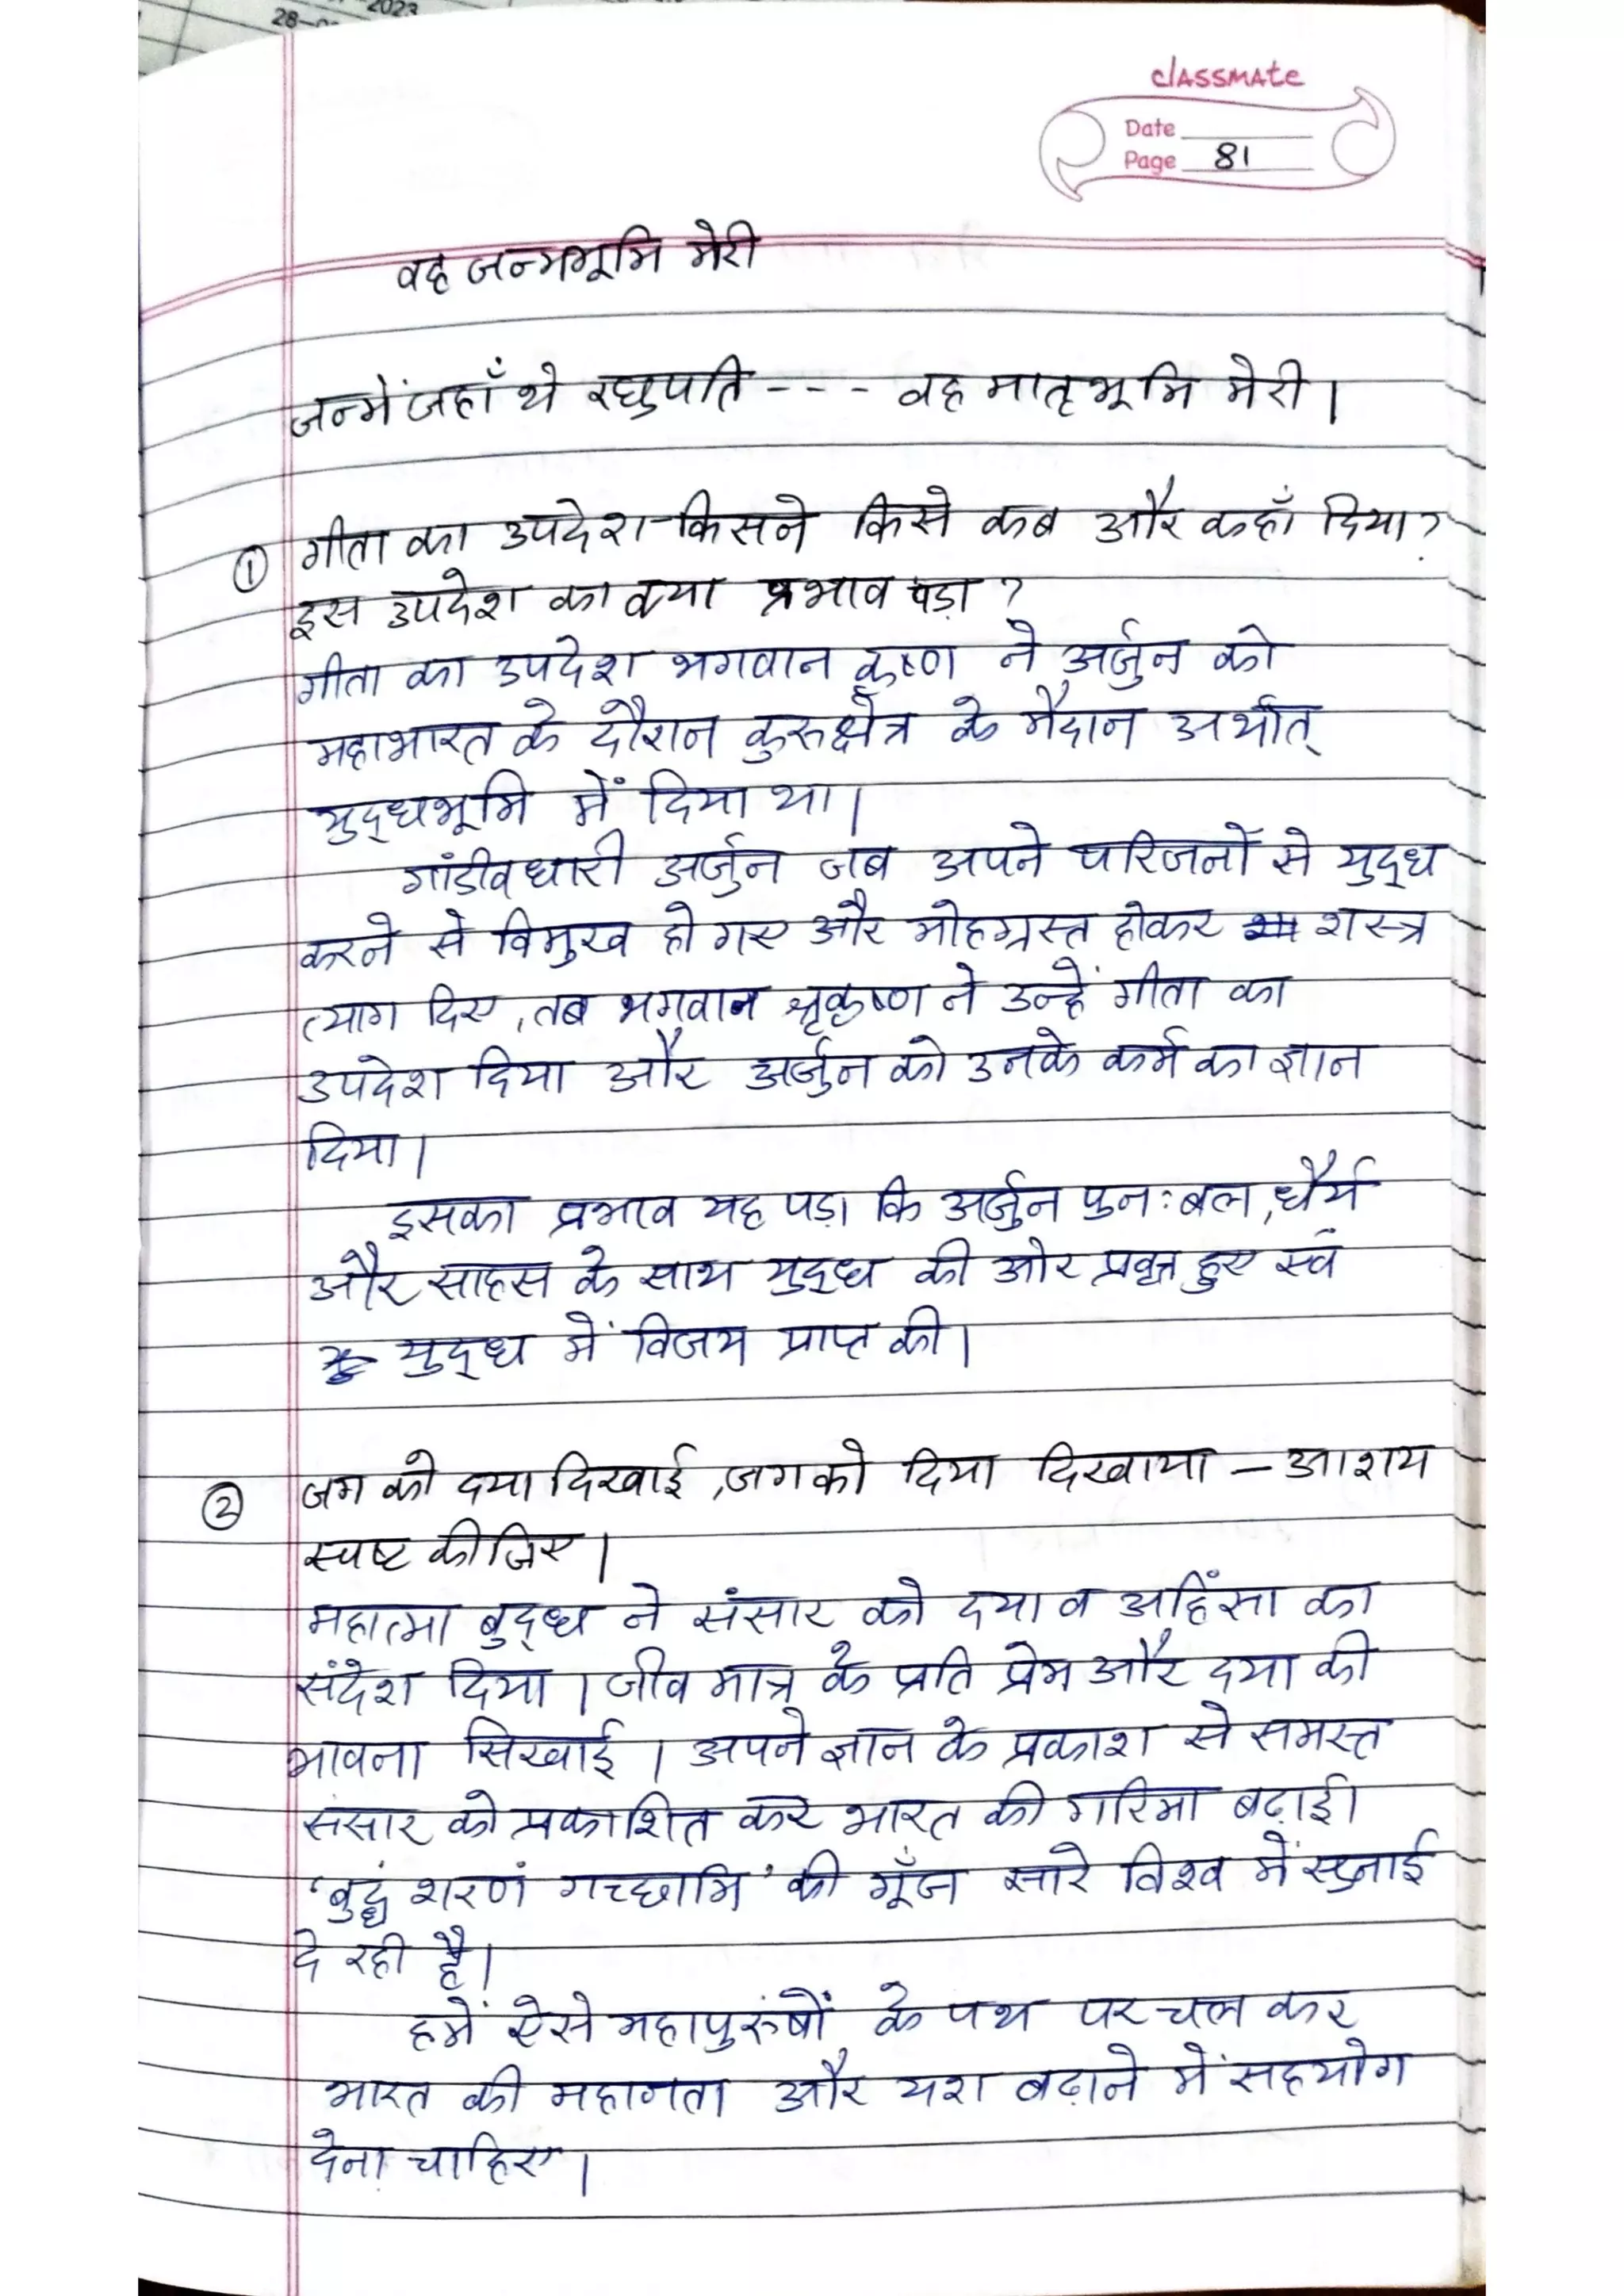 28-
2023
classmate
Date
Page 81
वह जन्मभूमि मेरी
जन्में जहाँ थे रघुपति - - - वह मातृभूमि मेरी।
① गीता का उपदेश किसने किसे कब और कहाँ दिया?
इस उपदेश का क्या प्रभाव पड़ा ?
गीता का उपदेश भगवान कृष्ण ने अर्जुन को
महाभारत के दौरान कुरुक्षेत्र के मैदान अर्थात्
युद्धभूमि में दिया था।
गांडीवधारी अर्जुन जब अपने परिजनों से युद्ध
करने से विमुख हो गए और मोहग्रस्त होकर शस्त्र
त्याग दिए, तब भगवान श्रृकृष्ण ने उन्हें गीता का
उपदेश दिया और अर्जुन को उनके कर्म का ज्ञान
दिया।
इसका प्रभाव यह पड़ा कि अर्जुन पुनः बल, धैर्य
और साहस के साथ युद्ध की ओर प्रवृत्त हुए एवं
युद्ध में विजय प्राप्त की।
② जग को दया दिखाई, जग को दिया दिखाया – आशय
स्पष्ट कीजिए।
महात्मा बुद्ध ने संसार को दया व अहिंसा का
संदेश दिया। जीव मात्र के प्रति प्रेम और दया की
भावना सिखाई। अपने ज्ञान के प्रकाश से समस्त
संसार को प्रकाशित कर भारत की गरिमा बढ़ाई।
'बुद्धं शरणं गच्छामि' की गूँज सारे विश्व में सुनाई
दे रही है।
हमें ऐसे महापुरुषों के पथ पर चल कर
भारत की महानता और यश बढ़ाने में सहयोग
देना चाहिए।